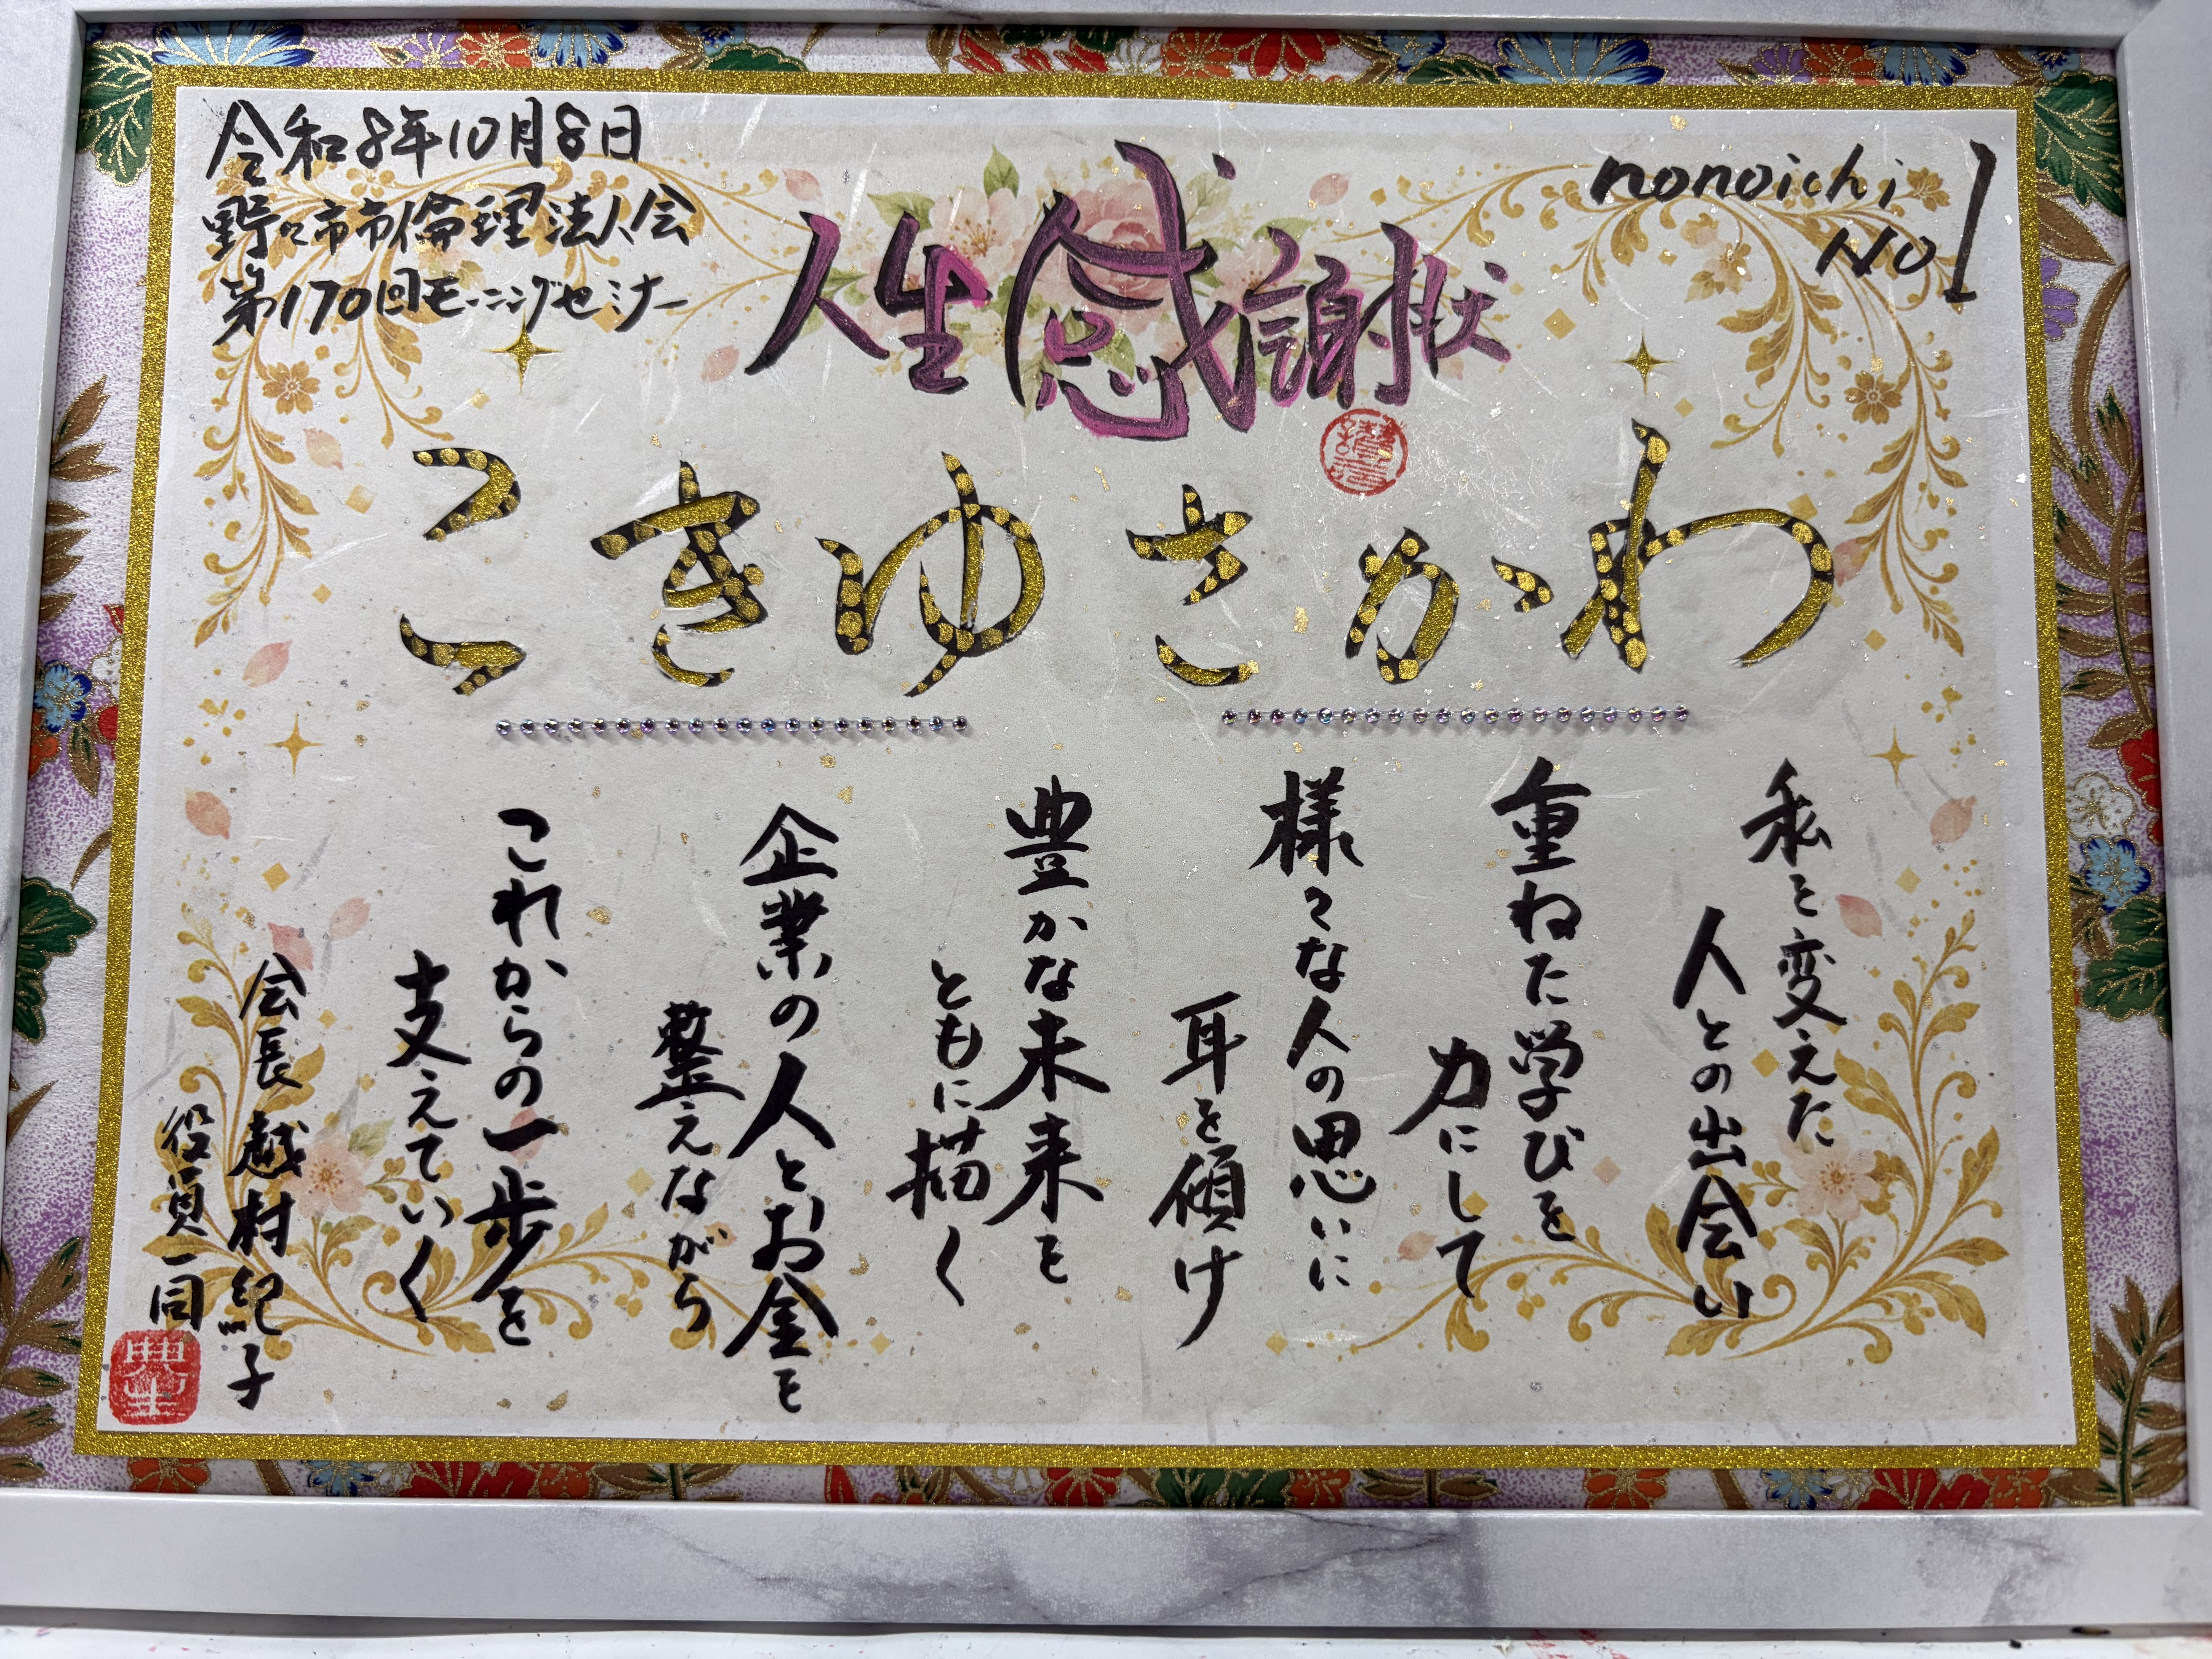 令和8年10月8日
野々市市倫理法人会
第170回モーニングセミナー
nonoichi
No1
人生感謝状
こきゆさかわ
私を変えた
人との出会い
重ねた学びを
力にして
様々な人の思いに
耳を傾け
豊かな未来を
ともに描く
企業の人とお金を
整えながら
これからの一歩を
支えていく
会長 越村紀子
役員一同